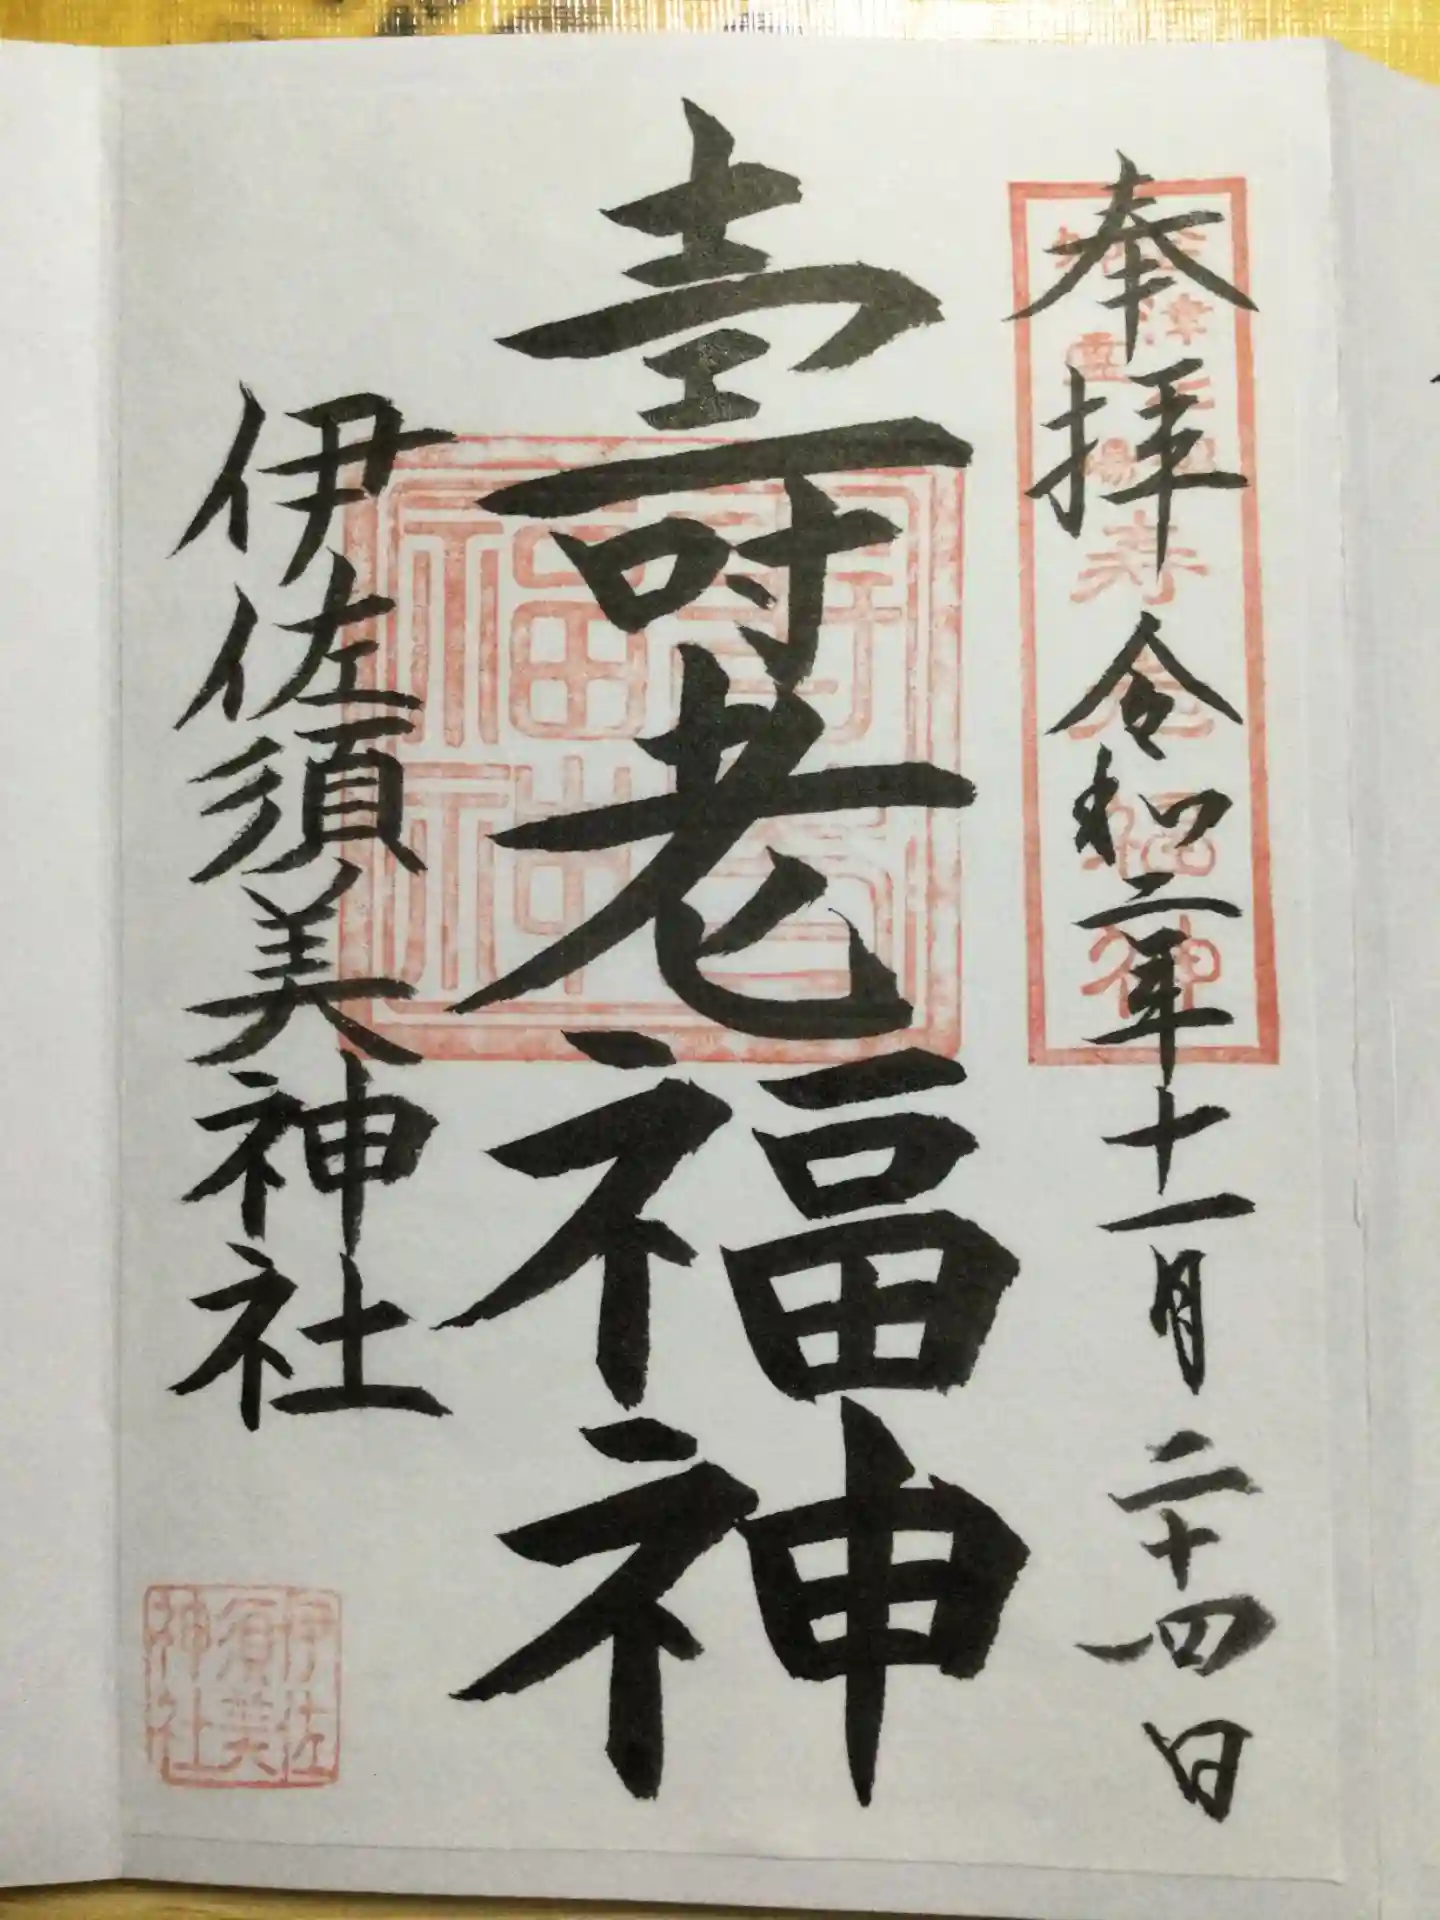 奉拝 令和二年十一月二十四日
壽老福神
伊佐須美神社
寿老福神
伊佐
須美
神社